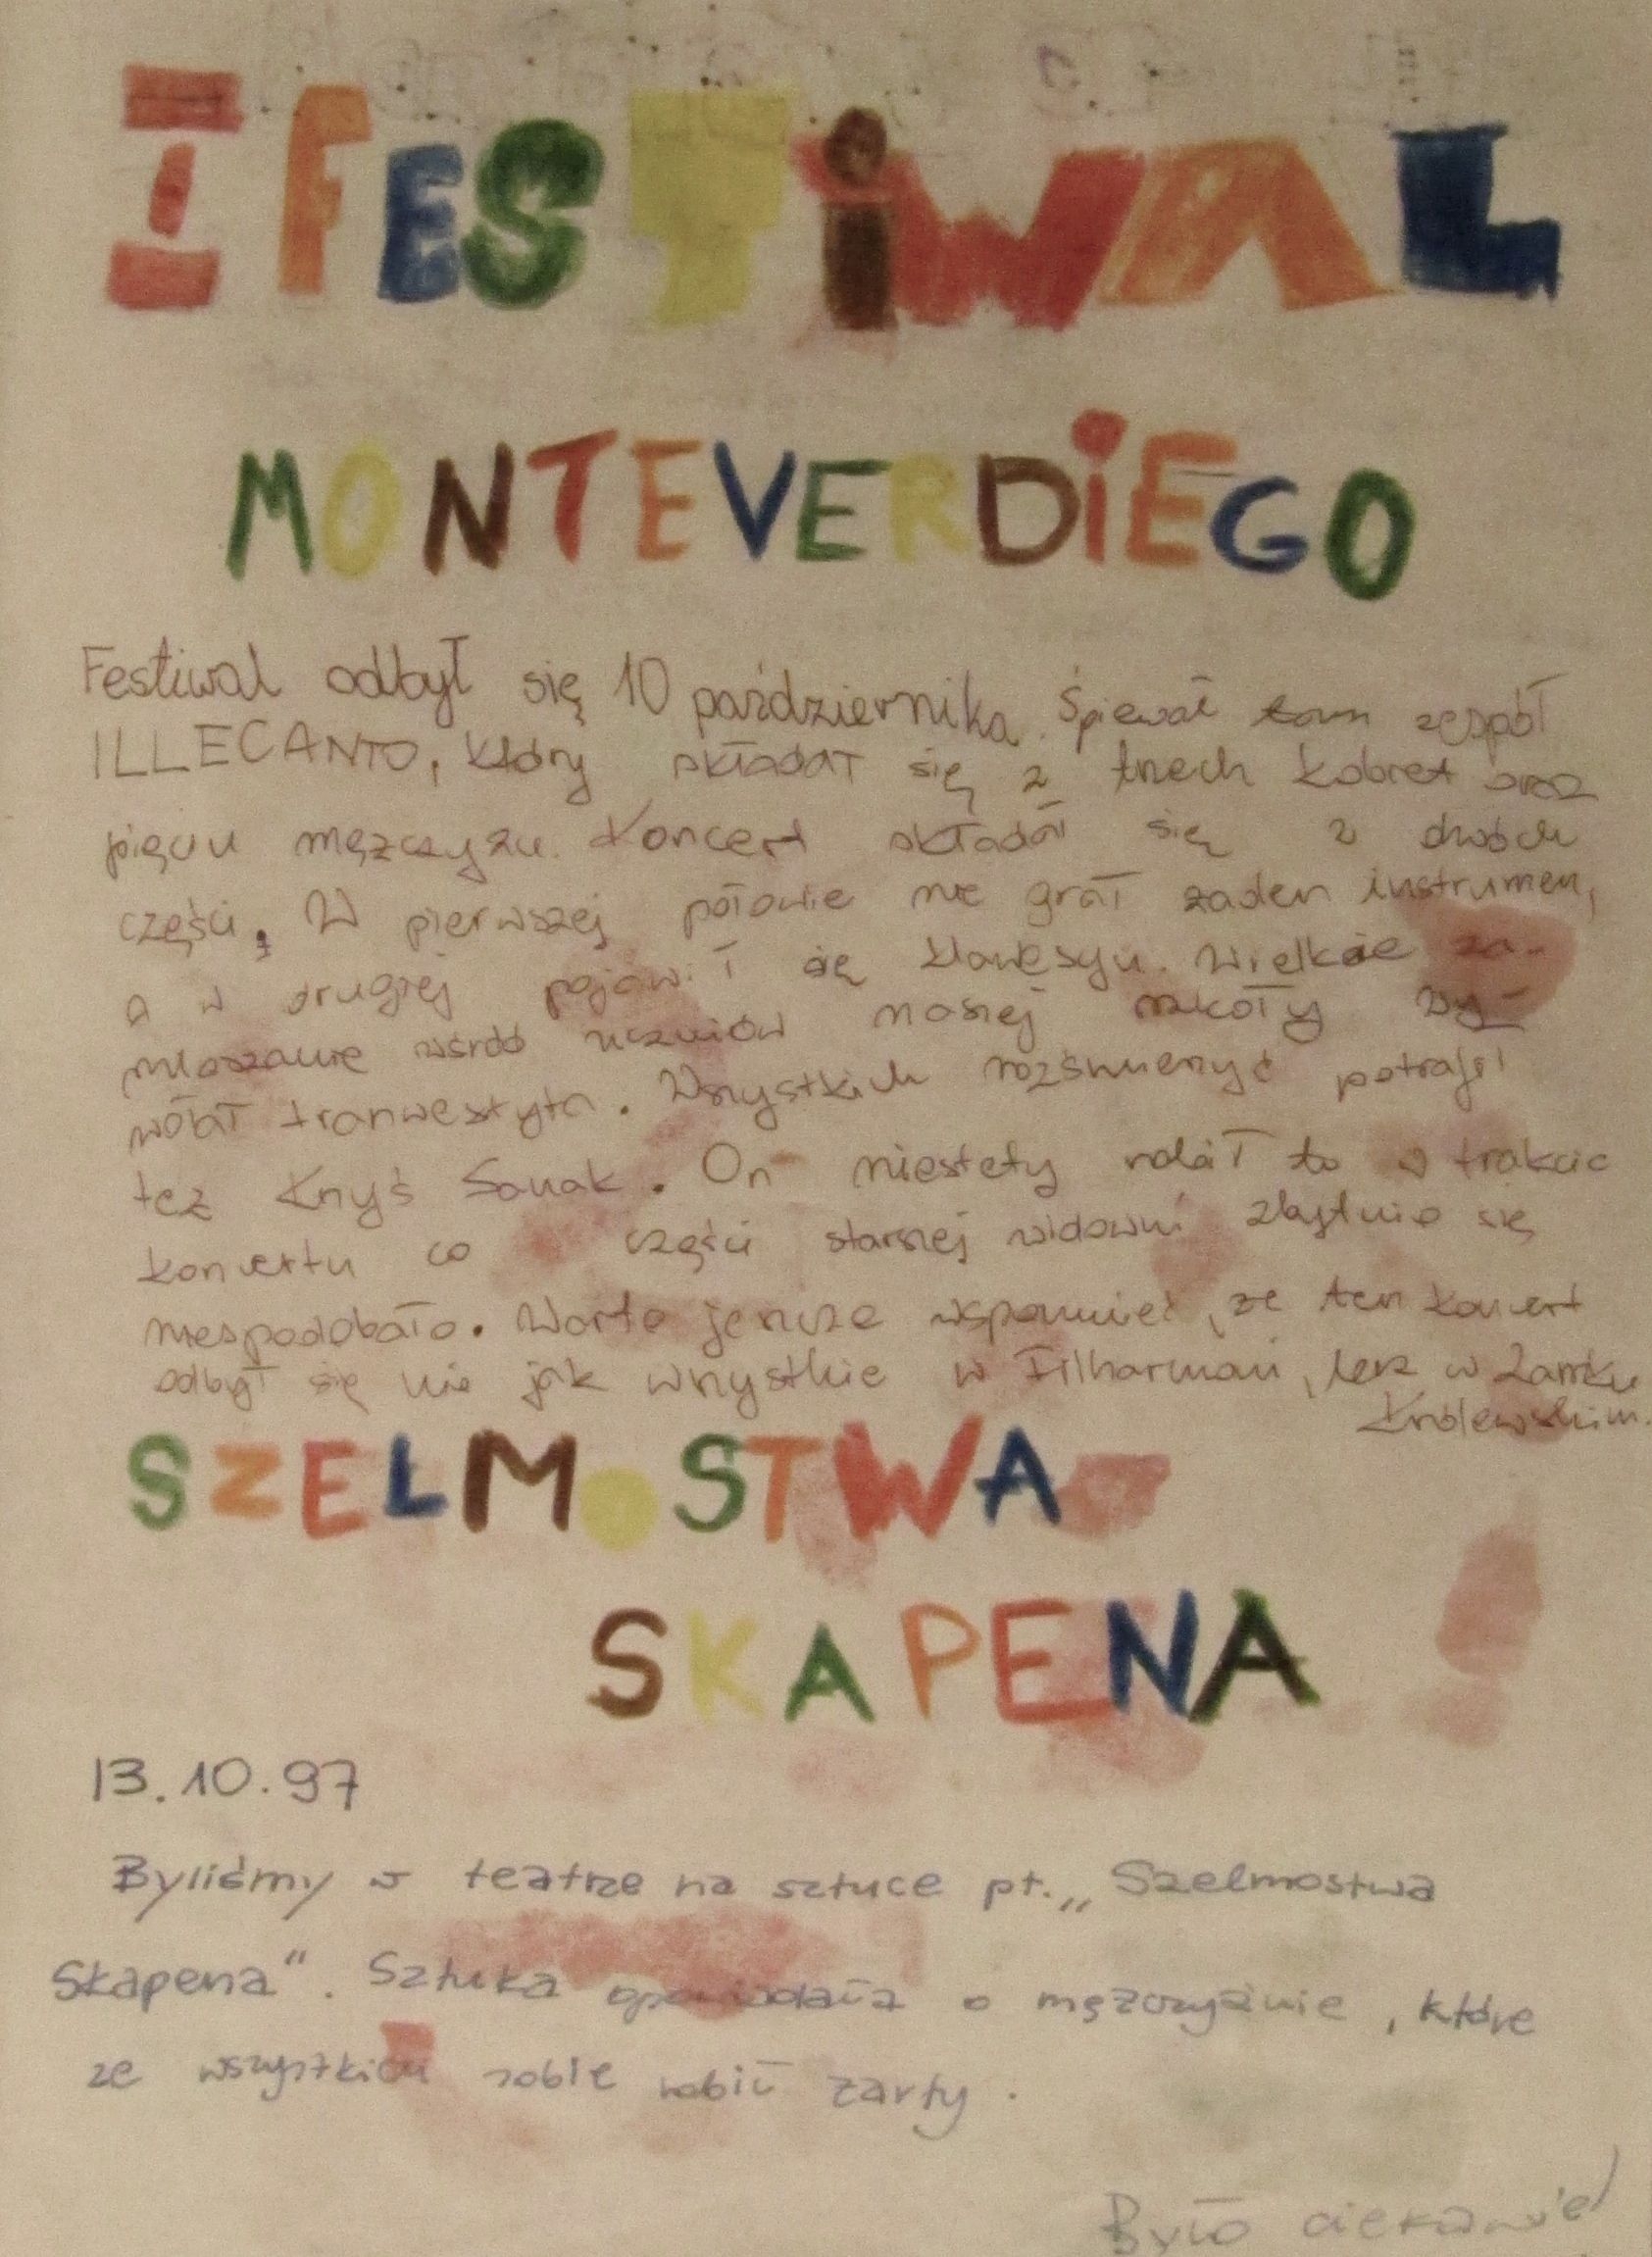 I FESTiWAL
MONTEVERDiEGO
Festiwal odbył się 10 października. Śpiewał tam zespół
ILLECANTO, który składał się z trzech kobiet oraz
pięciu mężczyzn. Koncert składał się z dwóch
części. W pierwszej połowie nie grał żaden instrumen,
a w drugiej pojawił się klawesyn. Wielkie za-
mieszanie wśród uczniów naszej szkoły wy-
wołał tranwestyta. Wszystkich rozśmieszyć potrafił
też Krzyś Sanak. On niestety robił to w trakcie
koncertu co części starszej widowni zbytnio się
niespodobało. Warto jeszcze wspomnieć, że ten koncert
odbył się nie jak wszystkie w Filharmonii, lecz w Zamku
Królewskim.
SZELMOSTWA
SKAPENA
13.10.97
Byliśmy w teatrze na sztuce pt. „Szelmostwa
Skapena". Sztuka opowiadała o mężczyźnie, które
ze wszystkich sobie robił żarty.
Było ciekawie!